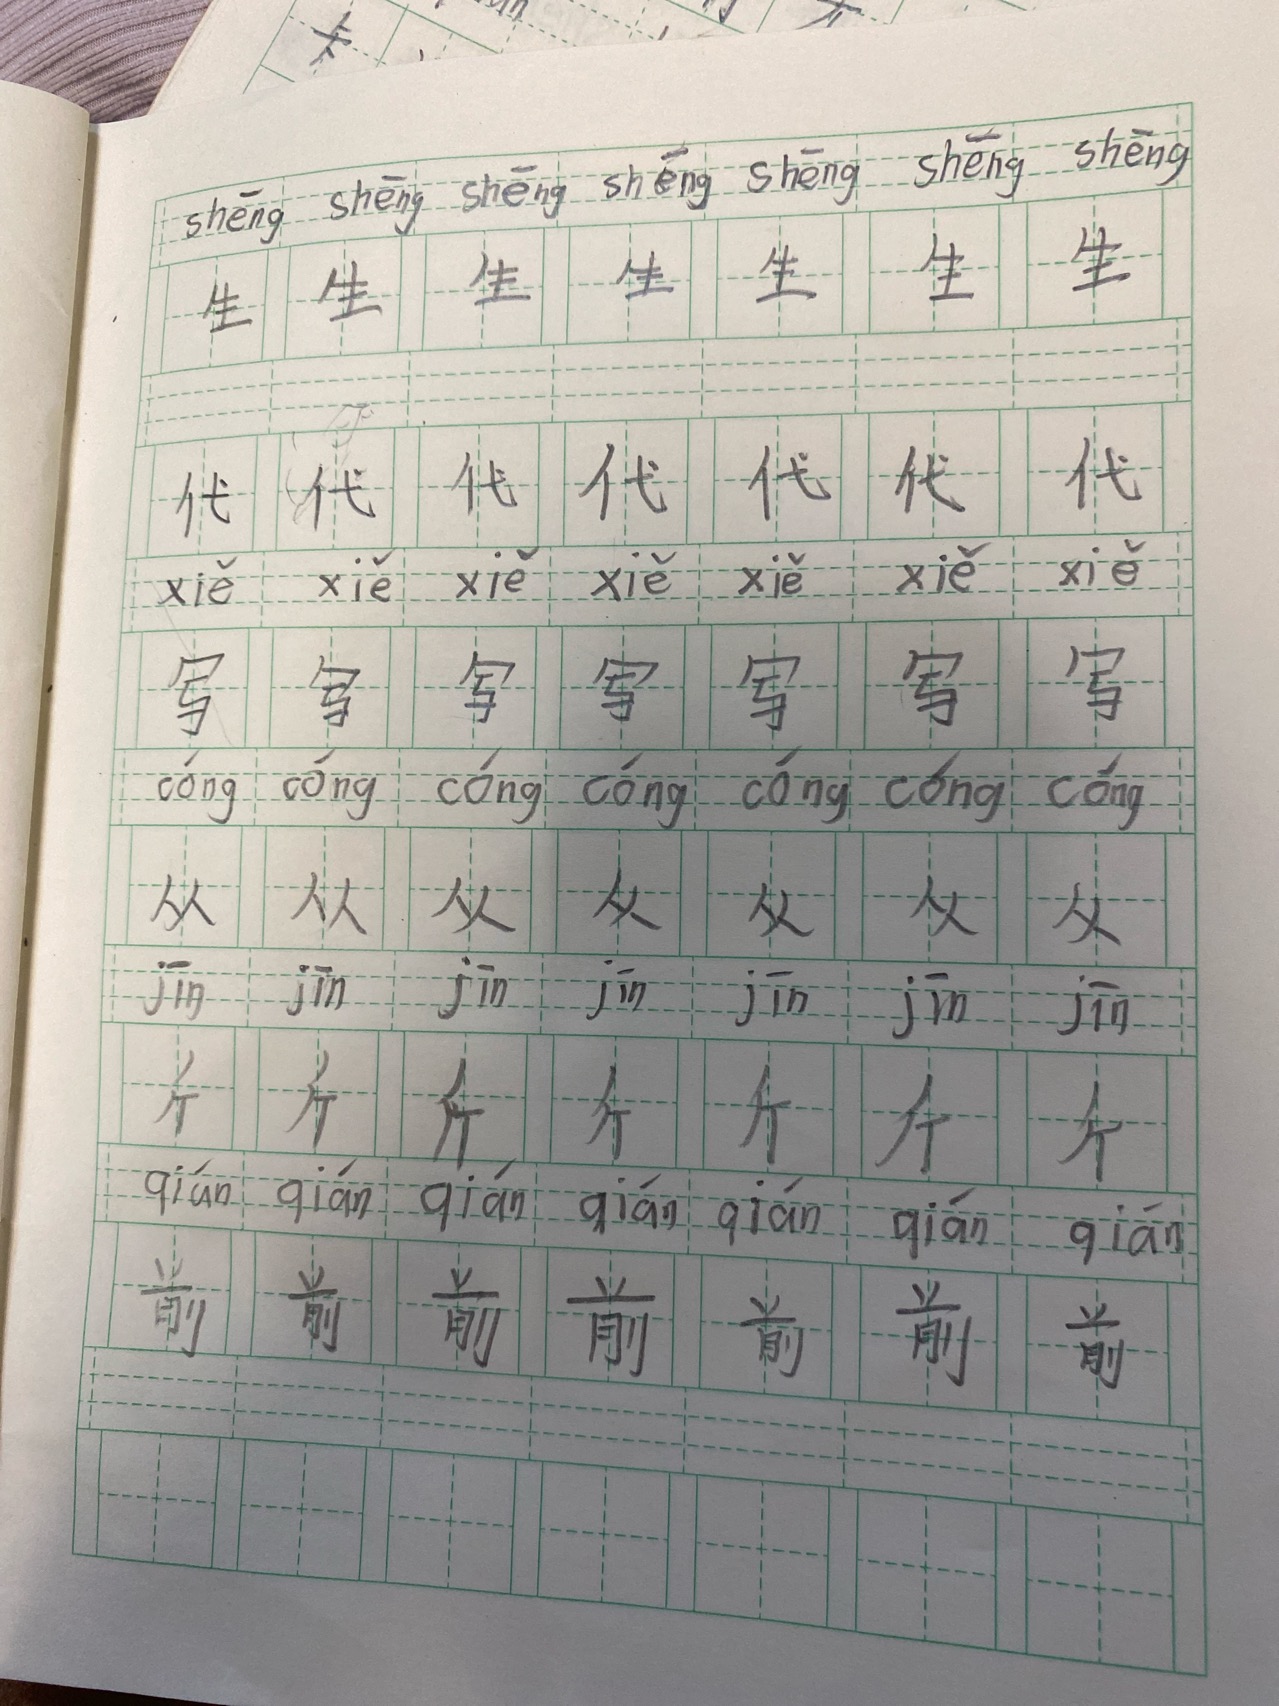 shēng shēng shēng shēng shēng shēng shēng
生 生 生 生 生 生 生
代 代 代 代 代 代 代
xiě xiě xiě xiě xiě xiě xiě
写 写 写 写 写 写 写
cóng cóng cóng cóng cóng cóng cóng
从 从 从 从 从 从 从
jīn jīn jīn jīn jīn jīn jīn
qián qián qián qián qián qián qián
前 前 前 前 前 前 前